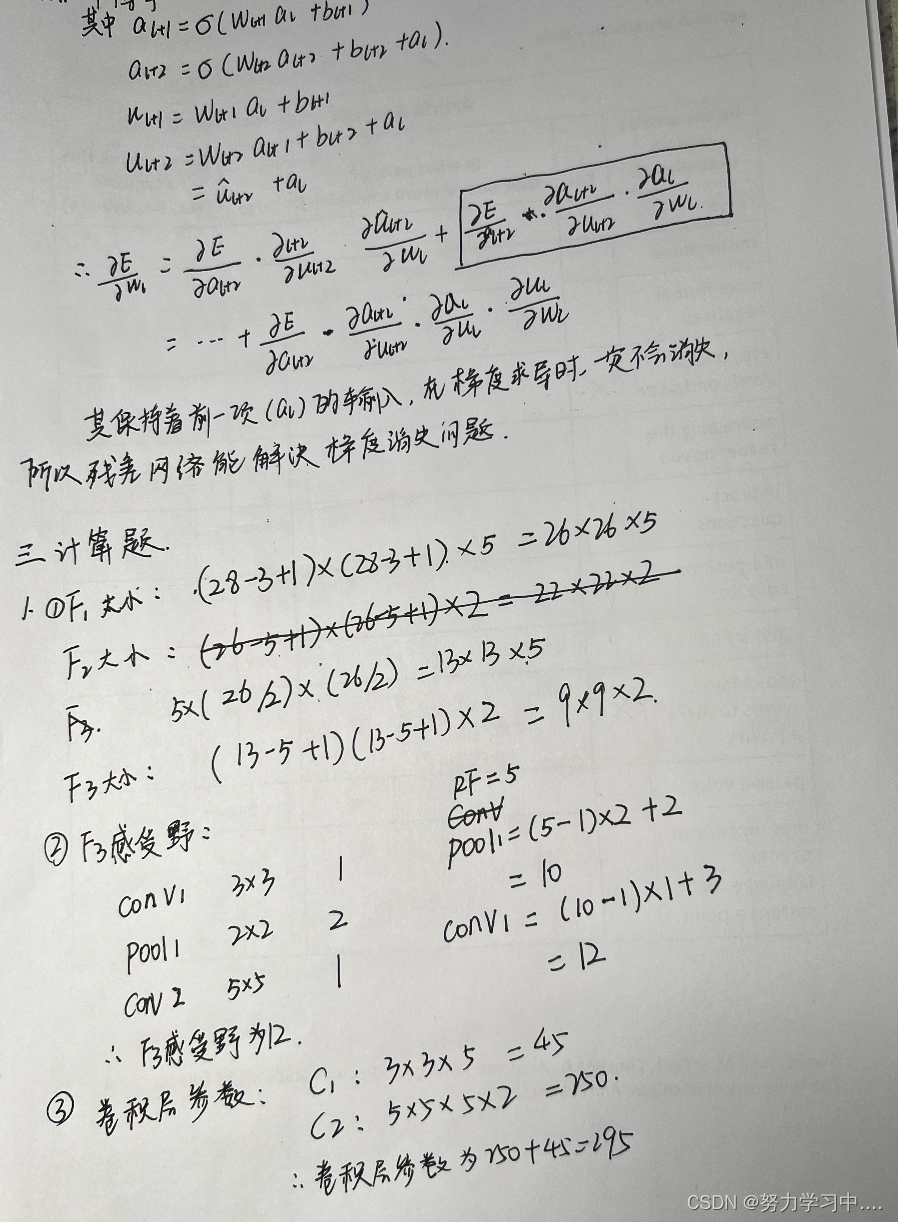 其中 a_{l+1} = σ(W_{l+1} a_l + b_{l+1})
a_{l+2} = σ(W_{l+2} a_{l+2} + b_{l+2} + a_l).
u_{l+1} = W_{l+1} a_l + b_{l+1}
u_{l+2} = W_{l+2} a_{l+1} + b_{l+2} + a_l
= û_{l+2} + a_l
∴ ∂E/∂w_l = ∂E/∂a_{l+2} · ∂_{l+2}/∂u_{l+2} · ∂û_{l+2}/∂w_l + ∂E/∂_{l+2} · ∂a_{l+2}/∂u_{l+2} · ∂a_l/∂w_l
= ··· + ∂E/∂a_{l+2} · ∂a_{l+2}/∂u_{l+2} · ∂a_l/∂u_l · ∂u_l/∂w_l
其保持着前一项(a_l)的输入,在梯度求导时,一定不会消失,
所以残差网络能解决梯度消失问题.
三 计算题.
1. ①F₁大小: (28-3+1)×(28-3+1)×5 = 26×26×5
F₂大小: (26-5+1)×(26-5+1)×2 = 22×22×2
F₃. 5×(26/2)×(26/2) = 13×13×5
F₃大小: (13-5+1)(13-5+1)×2 = 9×9×2.
② F₃感受野:
conV1 3×3 1
pool1 2×2 2
conV2 5×5 1
RF=5
ConV
pool1 = (5-1)×2+2
= 10
conV1 = (10-1)×1+3
= 12
∴ F₃感受野为12.
③ 卷积层参数: C₁: 3×3×5 = 45
C2: 5×5×5×2 = 250.
∴ 卷积层参数为250+45=295
CSDN @努力学习中....